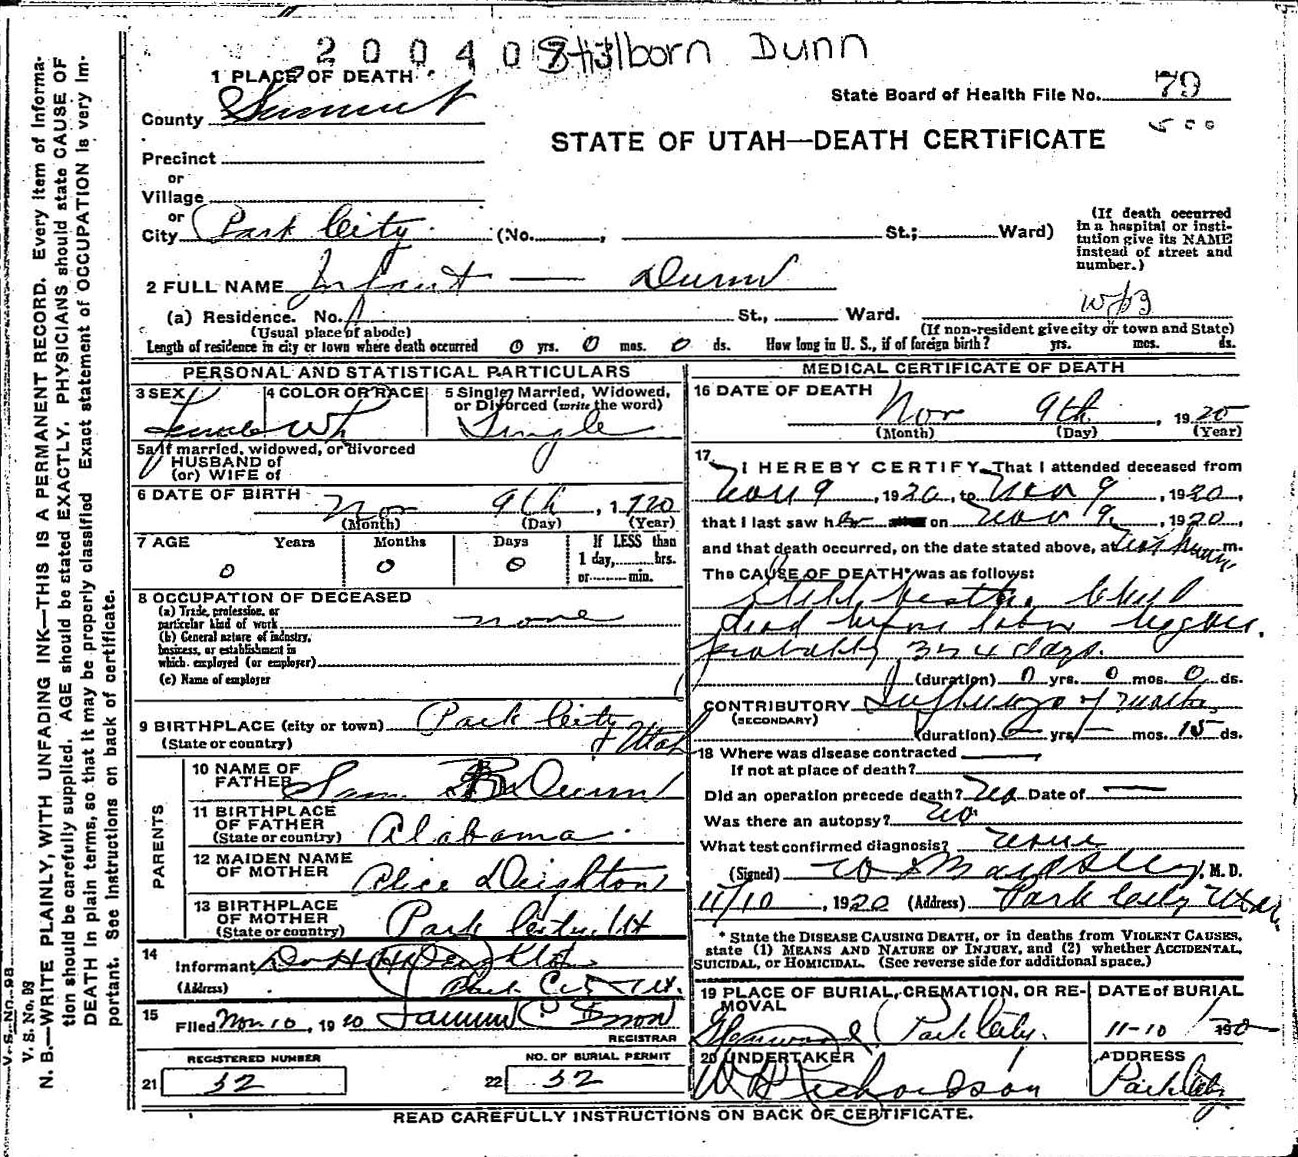 200407 Stillborn Dunn
1 PLACE OF DEATH
County Summit
State Board of Health File No. 79
500
STATE OF UTAH—DEATH CERTIFICATE
Precinct
or
Village
or
City Park City (No. , St.; Ward)
(If death occurred in a hospital or institution give its NAME instead of street and number.)
2 FULL NAME Infant — Dunn
(a) Residence. No. St., Ward.
(Usual place of abode) (If non-resident give city or town and State)
Length of residence in city or town where death occurred 0 yrs. 0 mos. 0 ds. How long in U. S., if of foreign birth? yrs. mos. ds.
PERSONAL AND STATISTICAL PARTICULARS
3 SEX Female
4 COLOR OR RACE Wh
5 Single, Married, Widowed, or Divorced (write the word) Single
5a If married, widowed, or divorced
HUSBAND of
(or) WIFE of
6 DATE OF BIRTH Nov 9th, 1920
(Month) (Day) (Year)
7 AGE Years Months Days If LESS than
0 0 0 1 day, hrs.
or min.
8 OCCUPATION OF DECEASED
(a) Trade, profession, or
particular kind of work none
(b) General nature of industry,
business, or establishment in
which employed (or employer)
(c) Name of employer
9 BIRTHPLACE (city or town) Park City
(State or country) Utah
PARENTS
10 NAME OF FATHER Sam B Dunn
11 BIRTHPLACE OF FATHER
(State or country) Alabama
12 MAIDEN NAME OF MOTHER Alice Deighton
13 BIRTHPLACE OF MOTHER
(State or country) Park City, Ut
14 Informant
(Address) Park City Ut.
15 Filed Nov 10, 1920
REGISTRAR
REGISTERED NUMBER
21 32
NO. OF BURIAL PERMIT
22 32
MEDICAL CERTIFICATE OF DEATH
16 DATE OF DEATH
Nov 9th 1920
(Month) (Day) (Year)
17 I HEREBY CERTIFY, That I attended deceased from
Nov 9, 1920, to Nov 9, 1920,
that I last saw her on Nov 9, 1920,
and that death occurred, on the date stated above, at m.
The CAUSE OF DEATH* was as follows:
Still birth. Child
dead before labor began.
probably 3 or 4 days.
(duration) 0 yrs. 0 mos. 0 ds.
CONTRIBUTORY Influenza of mother
(SECONDARY)
(duration) — yrs. — mos. 15 ds.
18 Where was disease contracted
If not at place of death?
Did an operation precede death? No Date of —
Was there an autopsy? No
What test confirmed diagnosis? None
(Signed) M. D.
11/10, 1920 (Address) Park City Utah
* State the DISEASE CAUSING DEATH, or in deaths from VIOLENT CAUSES,
state (1) MEANS AND NATURE OF INJURY, and (2) whether ACCIDENTAL,
SUICIDAL, or HOMICIDAL. (See reverse side for additional space.)
19 PLACE OF BURIAL, CREMATION, OR REMOVAL
Glenwood, Park City.
DATE of BURIAL
11-10 1920
20 UNDERTAKER
W Richardson
ADDRESS
Park City
READ CAREFULLY INSTRUCTIONS ON BACK OF CERTIFICATE.
V. S. No. 98
V. S. No. 98
N. B.—WRITE PLAINLY, WITH UNFADING INK—THIS IS A PERMANENT RECORD. Every item of informa-
tion should be carefully supplied. AGE should be stated EXACTLY. PHYSICIANS should state CAUSE OF
DEATH in plain terms, so that it may be properly classified. Exact statement of OCCUPATION is very im-
portant. See instructions on back of certificate.